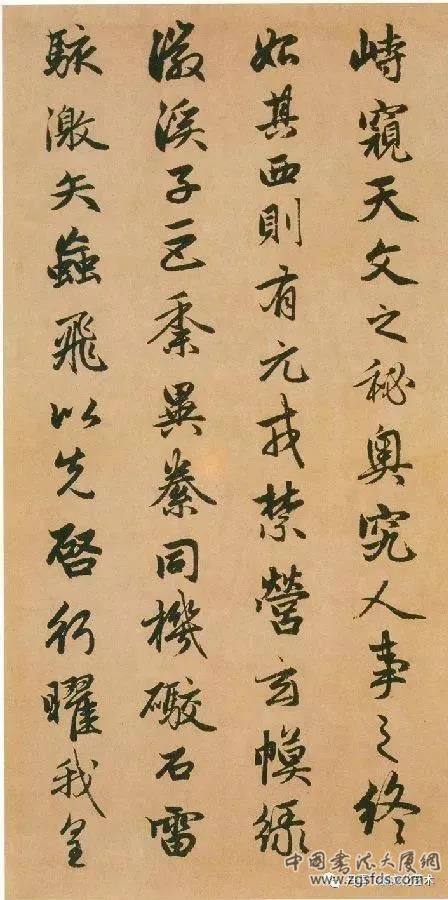 峙窺天文之秘奥究人事之終
始其西則有元戎禁營玄幙緑
徽溪子巨黍異絭同機礮石雷
駭激矢蝱飛以先啓行曜我皇
中國書法大厦網
www.zgsfds.com